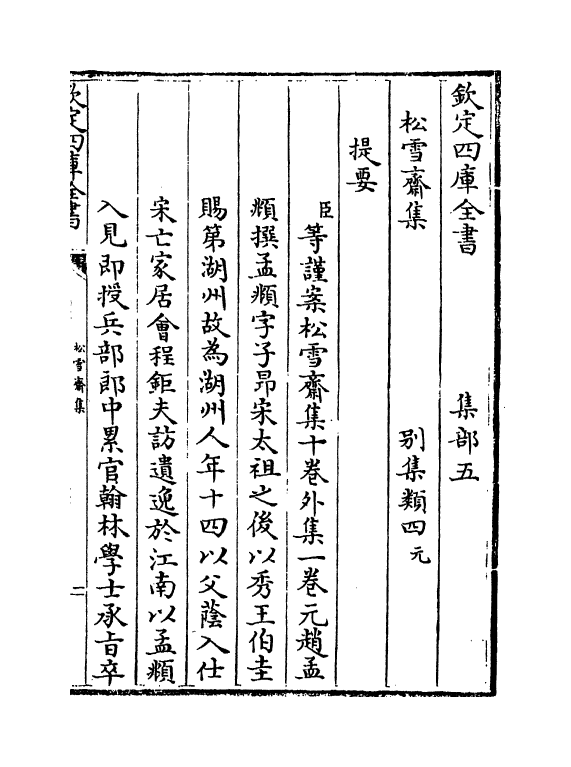 欽定四庫全書　集部五
松雪齋集　別集類四元
提要
臣等謹案松雪齋集十卷外集一卷元趙孟
頫撰孟頫字子昂宋太祖之後以秀王伯圭
賜第湖州故為湖州人年十四以父蔭入仕
宋亡家居會程鉅夫訪遺逸於江南以孟頫
入見即授兵部郎中累官翰林學士承旨卒
欽定四庫全書　松雪齋集　二